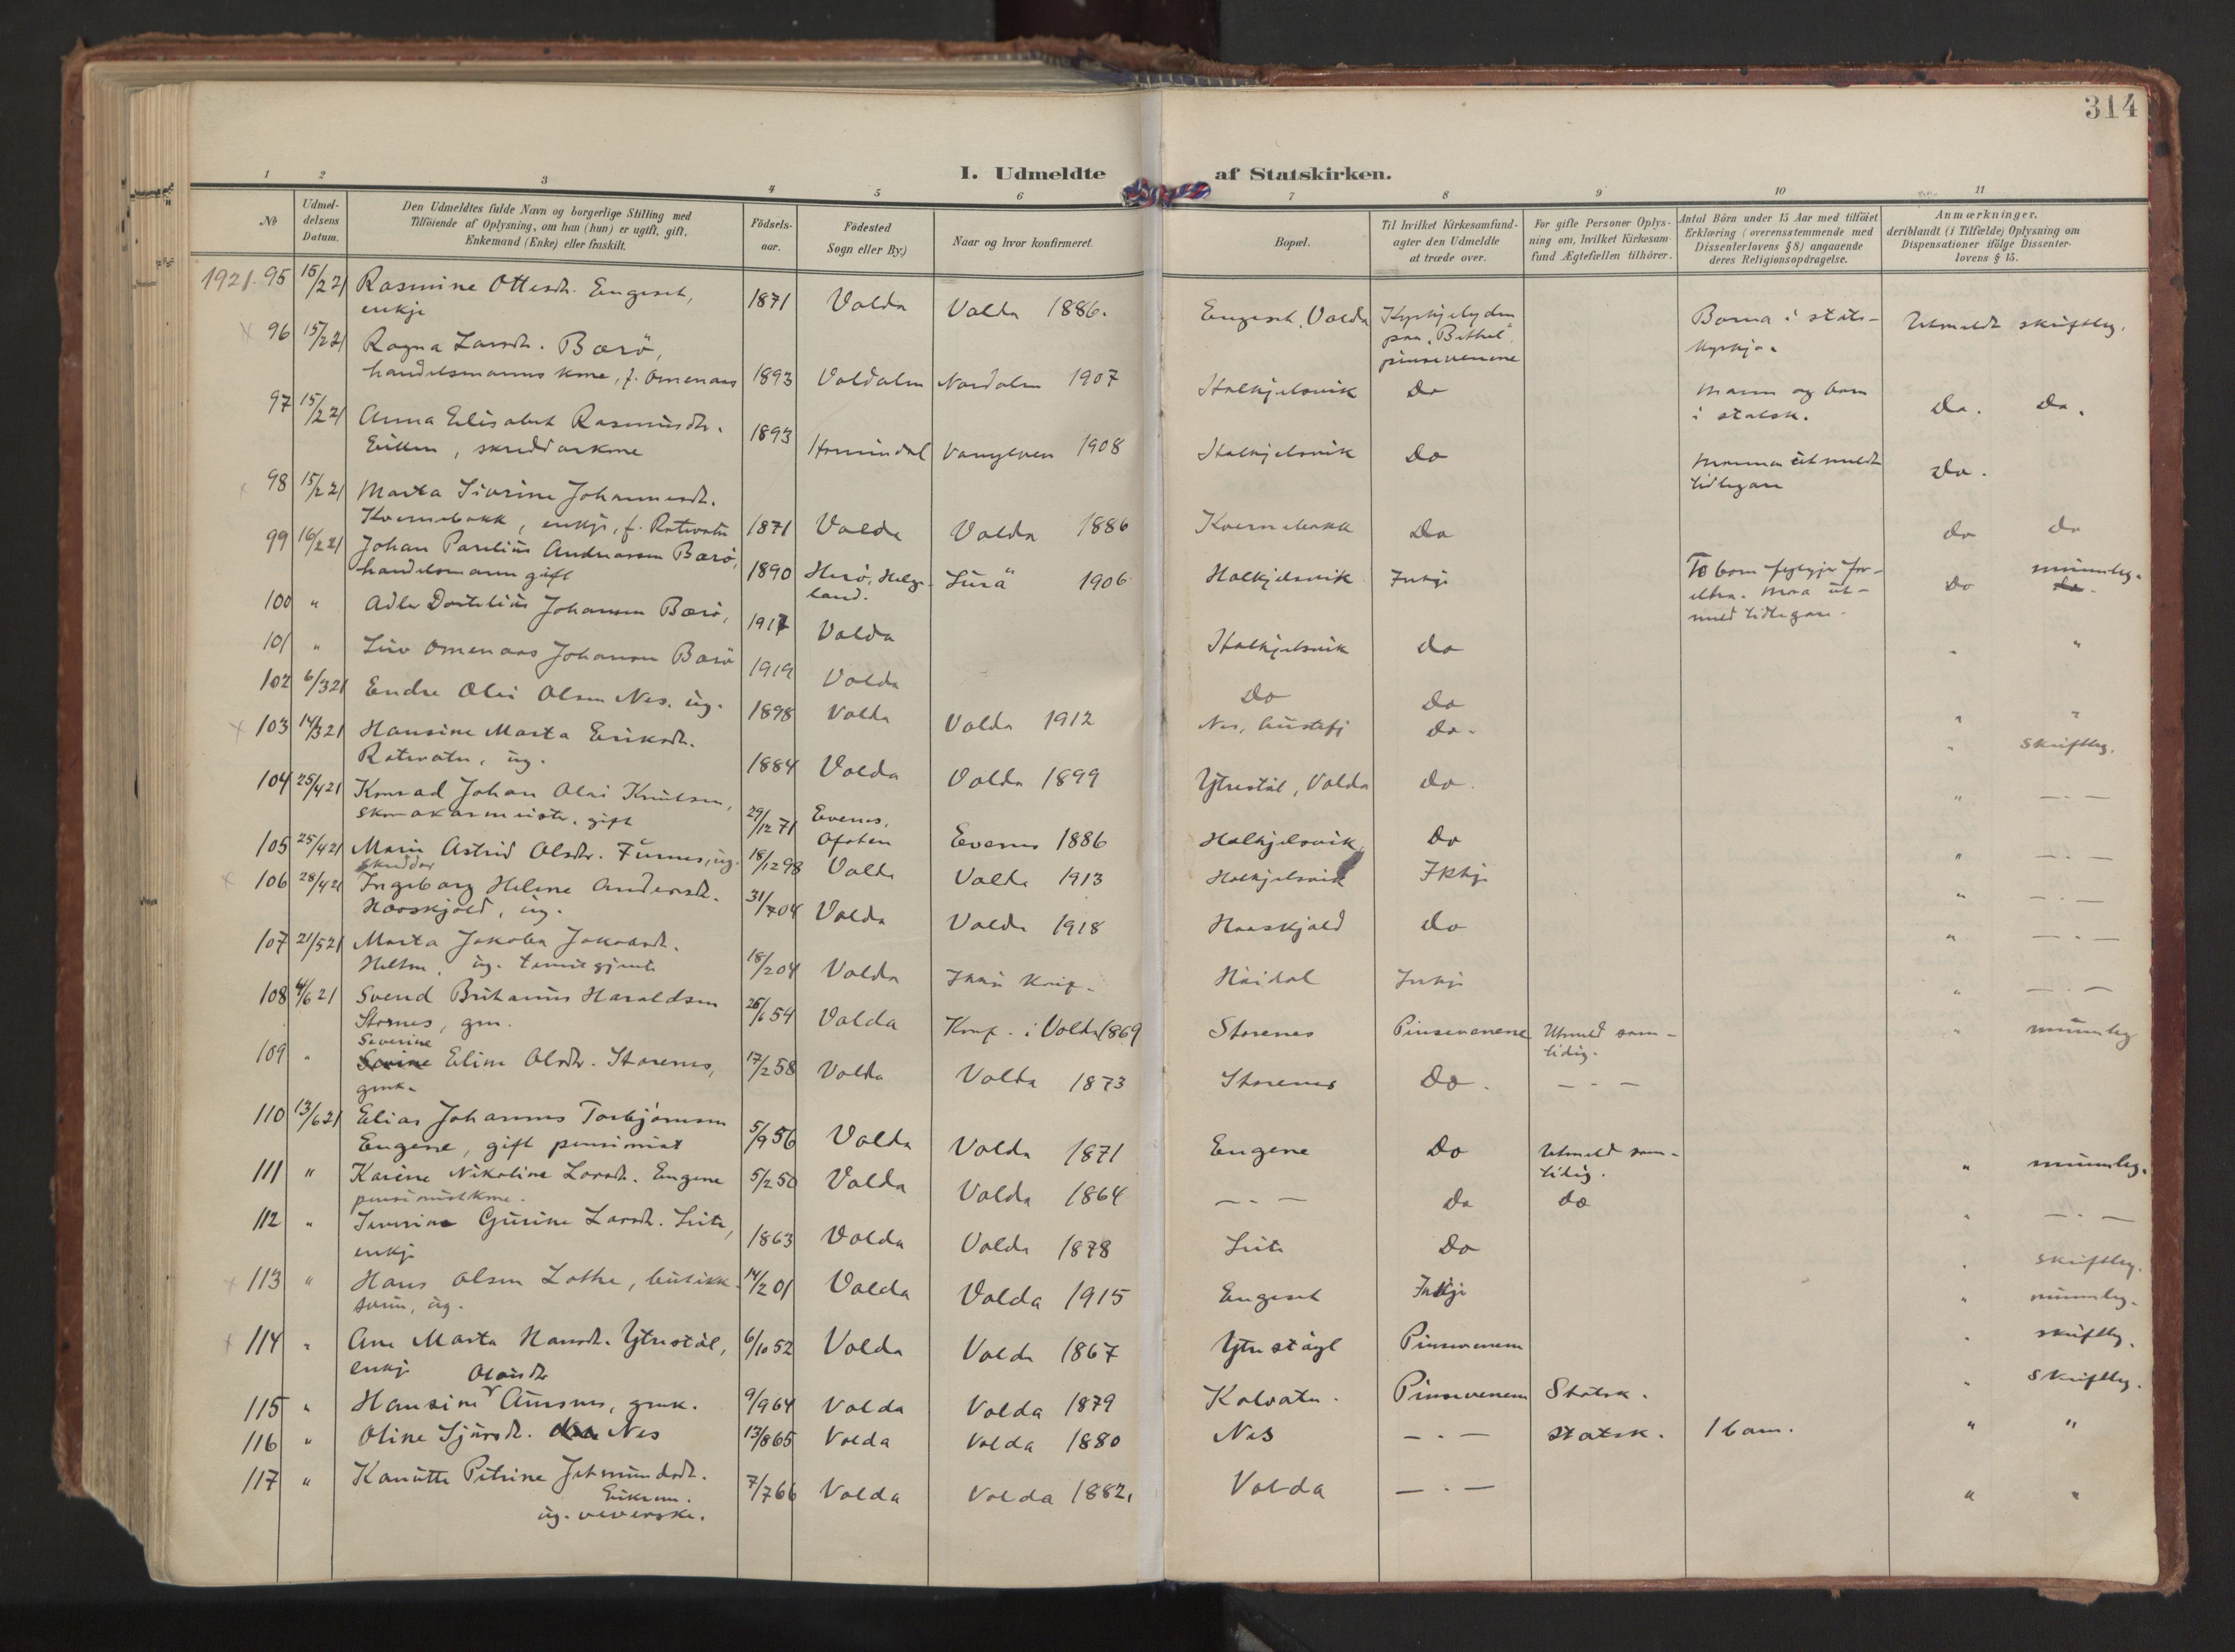 314
I. Udmeldte af Statskirken.
1 2 3 4 5 6 7 8 9 10 11
№
Udmel-
delsens
Datum.
Den Udmeldtes fulde Navn og borgerlige Stilling med
Tilföiende af Oplysning, om han (hun) er ugift, gift,
Enkemand (Enke) eller fraskilt.
Födsels-
aar.
Födested
Sogn eller By.)
Naar og hvor konfirmeret.
Bopæl.
Til hvilket Kirkesamfund-
agter den Udmeldte
at træde over.
For gifte Personer Oplys-
ning om, hvilket Kirkesam-
fund Ægtefællen tilhörer.
Antal Börn under 15 Aar med tilföiet
Erklæring (overensstemmende med
Dissenterlovens § 8) angaaende
deres Religionsopdragelse.
Anmærkninger,
deriblandt (i Tilfælde) Oplysning om
Dispensationer ifölge Dissenter-
lovens § 15.
1921. 95 15/2 21 Rasmine Ottesdt. Engeset, 1871 Volda Volda 1886. Engeset, Volda Kyrkjelyden Borna i stats- Utmeldt skriftleg.
enkje paa "Bethel" kyrkja
pinsevenene
96 15/2 21 Ragna Larsdt. Bærö,
handelsmanns kone, f. Omenaas 1893 Valdalen Nordalen 1907 Halkjelsvik Do Mann og born Do. Do.
i statsk.
97 15/2 21 Anna Elisabet Rasmusdt. 1893 Hornindal Vanylven 1908 Halkjelsvik Do Mannen utmeldt Do.
, skreddarkone tidlegare
98 15/2 21 Marta Siverine Johannesdt.
Kvernebakk, enkje, f. Rotevatn 1871 Volda Volda 1886 Kvernebakk Do do do
99 16/2 21 Johan Parelius Andreassen Bærö, 1890 Herö, Helge- Lurö 1906 Halkjelsvik Inkje To born fylgjer for- Do munnleg.
handelsmann gift land. eldra. Mora ut-
meld tidlegare.
100 " Adler Dortelius Johansen Bærö, 1917 Volda Halkjelsvik do " "
101 " Liv Omenaas Johansen Bærö 1919 Volda Do Do " "
102 6/3 21 Endre Olai Olsen Nes. ug. 1898 Volda Volda 1912 Nes, Austefj do. " skriftleg.
103 14/3 21 Hansine Marta Eriksdt.
Rotevatn, ug. 1884 Volda Volda 1899 Ytrestöl, Volda do. " — . —
104 25/4 21 Konrad Johan Olai Knutsen, 29/12 71 Evenes, Evenes 1886 Halkjelsvik Do " — . —
skomakarmeister, gift Ofoten
105 25/4 21 Marie Astrid Olsdtr. Furnes, ug. 18/12 98 Volda Volda 1913 Halkjelsvik Ikkje " — . —
skreddar
106 28/4 21 Ingeborg Helene Andersdt. 31/7 04 Volda Volda 1918 Haaskjold do " — . —
Haaskjold, ug.
107 21/5 21 Marta Jakoba Jakobsdt. 18/2 04 Volda Ikkje Konf. Inkje " — . —
, ug. tenestgjente
108 4/6 21 Svend Haraldsen 26/6 54 Volda Konf. i Volda 1869 Storenes Pinsevenene Utmeld sam- " munnleg
Stornes, gm. tidig.
109 " Severine Eline Olsdtr. Storenes, 17/2 58 Volda Volda 1873 Storenes Do. — . —
gmk.
110 13/6 21 Elias Johannes Torbjörnsen
Eugene, gift pensionist 5/9 56 Volda Volda 1871 Eugene Do Utmeld sam- " munnleg.
tidig.
111 " Karine Nikoline Larsdt. Eugene 5/2 50 Volda Volda 1864 — . — Do do " — . —
pensionistkone.
112 " Severine Gurine Larsdt. Leite, 1863 Volda Volda 1878 Leite Do " skriftleg.
enkje
113 " Hans Olsen Lothe, butikk- 14/2 01 Volda Volda 1915 Engeset Inkje " munnleg.
svein, ug.
114 " Ane Marta Hansdt. Ytrestöl, 6/10 52 Volda Volda 1867 Ytrestöyl Pinsevenene " skriftleg.
enkje
115 " Hansine Olausdtr Aursnes, gmk. 9/9 64 Volda Volda 1879 Kolvatn. Pinsevenene Statsk. " skriftleg.
116 " Oline Sjursdt. Nes 13/8 65 Volda Volda 1880 Nes — . — statsk. 1 barn. " "
117 " Kanutte Petrine Jetmundsdt. 7/7 66 Volda Volda 1882, Volda — . — " "
ug. veverske.